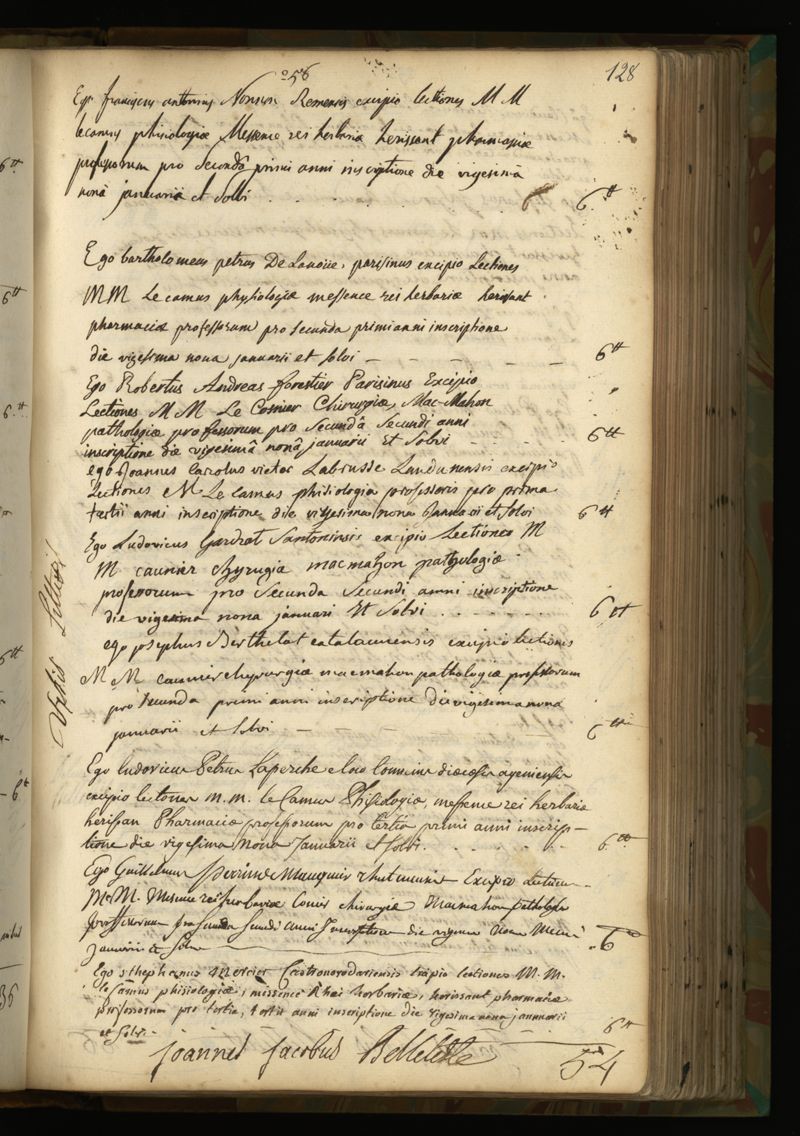 58
128
Ego franciscus antonius Remensis excipio lectiones M M
lecamus phisiologiæ Messence rei herbariæ herissant pharmaciæ
professorum pro secundâ primi anni inscriptione die vigesimâ
nonâ januarii et solvi . . . . . . 6 6tt
Ego bartholomeus petrus De Lanoüe, parisinus excipio Lectiones
MM Le camus physiologiæ messence rei herbariæ herissant
pharmaciæ professorum pro secunda primi anni inscriptione
die vigesima nona januarii et solvi — — — — — 6tt
Ego Robertus Andreas forestier Parisinus Excipio
Lectiones M M Le Chirurgiæ, Mac-Mahon
pathologiæ professorum pro Secundâ Secundi anni
inscriptione die vigesimâ nonâ januarii Et Solvi - - - - 6tt
ego Joannes Carolus victor Labrusse Laudunensis excipio
Lectiones M Le camus phisiologia professoris pro prima
tertii anni inscriptione die vigesima nona Januarii et solvi 6tt
Ego Ludovicus Gardrat Santonensis excipio Lectiones M
M caunier chyrugia macmahon pathologiæ
professorum pro Secunda Secundi anni inscriptione
die vigesima nona januari Et Solvi . . . . . . . 6tt
ego josephus Berthelot catalaunensis excipio lectiones
M M caunier chyrurgiæ macmahon pathologiæ professorum
pro secunda primi anni inscriptione die vigesima nona
januarii et solvi — — — — — 6tt
Ego ludovicus Petrus Laperche diœcesis
excipio lectiones m. m. le Camus Phisiologiæ, messence rei herbariæ
herissan Pharmaciæ professorum pro tertia primi anni inscrip-
tione die vigesima nona Januarii et solvi . . . . . 6tt
Ego Guillelmus Excipio Lectiones
M. M. rei herbariæ chirurgiæ Macmahon pathologiæ
professorum pro secunda secundi anni Inscriptione die nona
Januarii et solvi 6
Ego sthephanus mercier excipio lectiones M. M.
le camus phisiologiæ, missence Rhei horbariæ, horissant pharmaciæ
professorum pro tertia, tertii anni inscriptione die vigesima nona jannuarii
et solvi. 6tt
Joannes Jacobus Belleteste
54